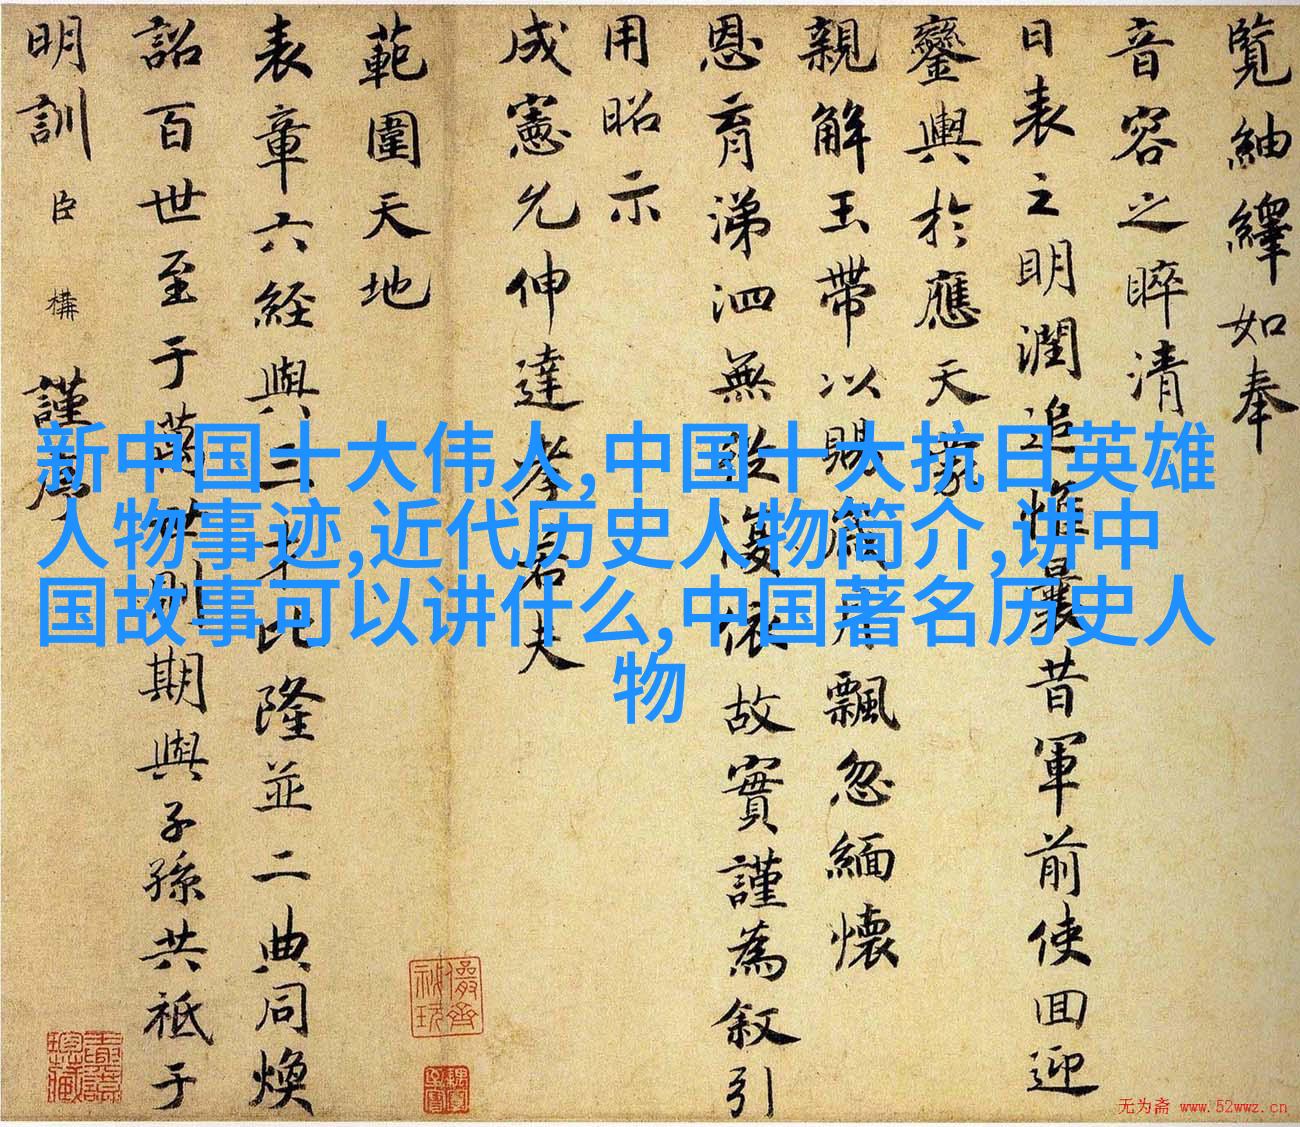 覽紬繹如奉
音容之睟清
日表之明潤追惟曩昔軍前使回迎
鑾輿於應天蒙
親解玉帶以賜
飄忽緬懷
恩育涕泗無從復依故實謹為叙引
用昭示
成憲允伸達孝若夫
範圍天地
表章六經與三才比隆並二典同煥
詔百世至于萬
期與子孫共祗于
明訓臣構謹
新中国十大伟人,中国十大抗日英雄
人物事迹,近代历史人物简介,讲中
国故事可以讲什么,中国著名历史人
物
无为斋 www.52wwz.cn